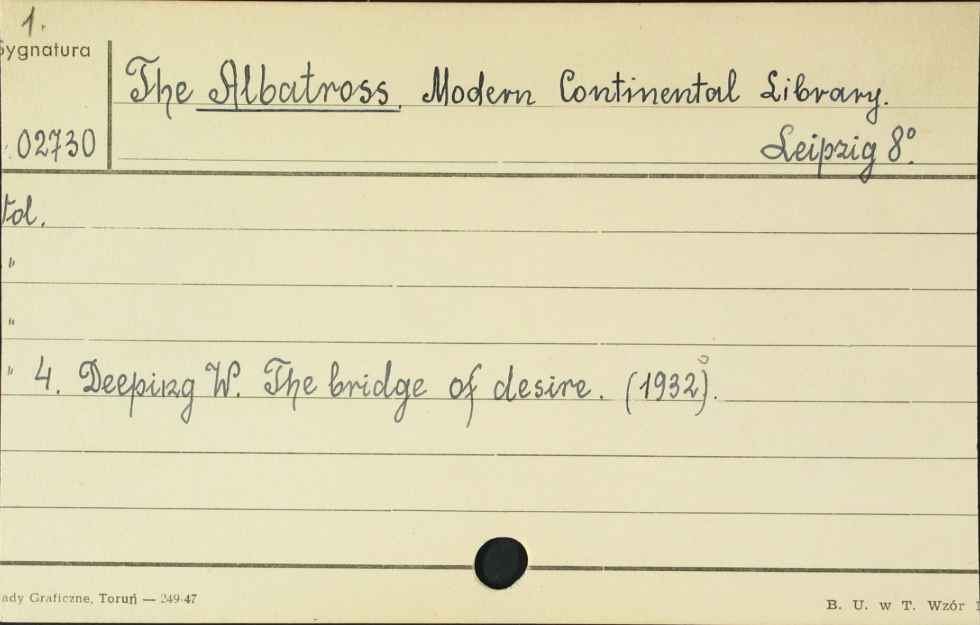 1.
Sygnatura
The Albatross. Modern Continental Library.
02730
Leipzig 8°.
Vol.
"
"
" 4. Deeping W. The bridge of desire. (1932).
ady Graficzne, Toruń — 249-47
B. U. w T. Wzór